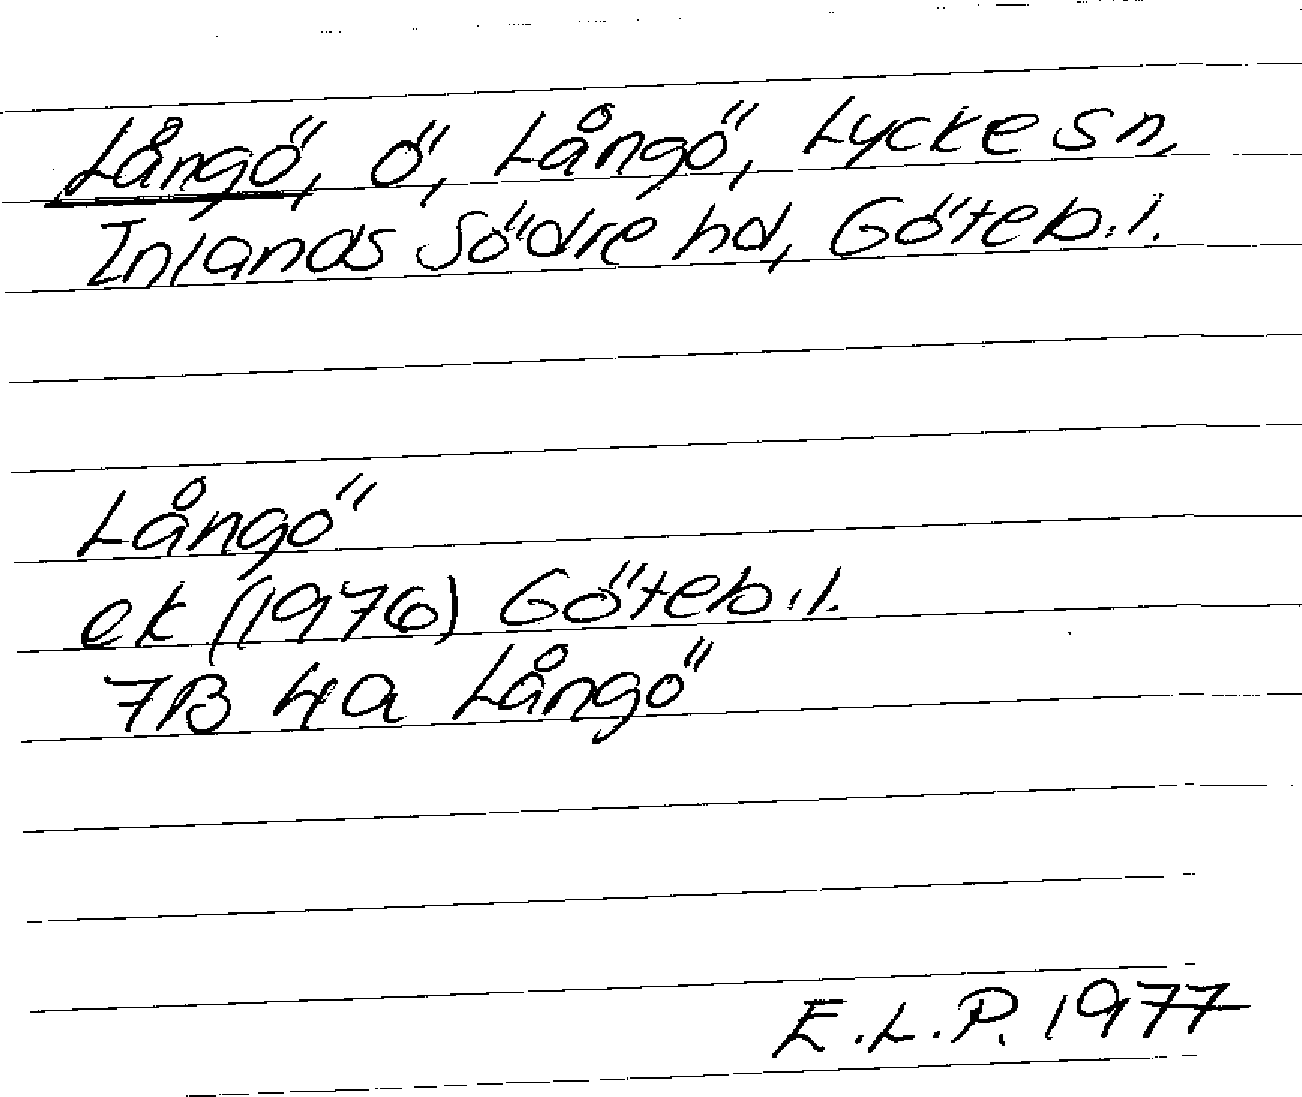 Långö, ö, Långö, Lycke sn,
Inlands Södre hd, Göteb.l.
Långö
ek (1976) Göteb.l.
7B 4a Långö
E.L.P. 1977